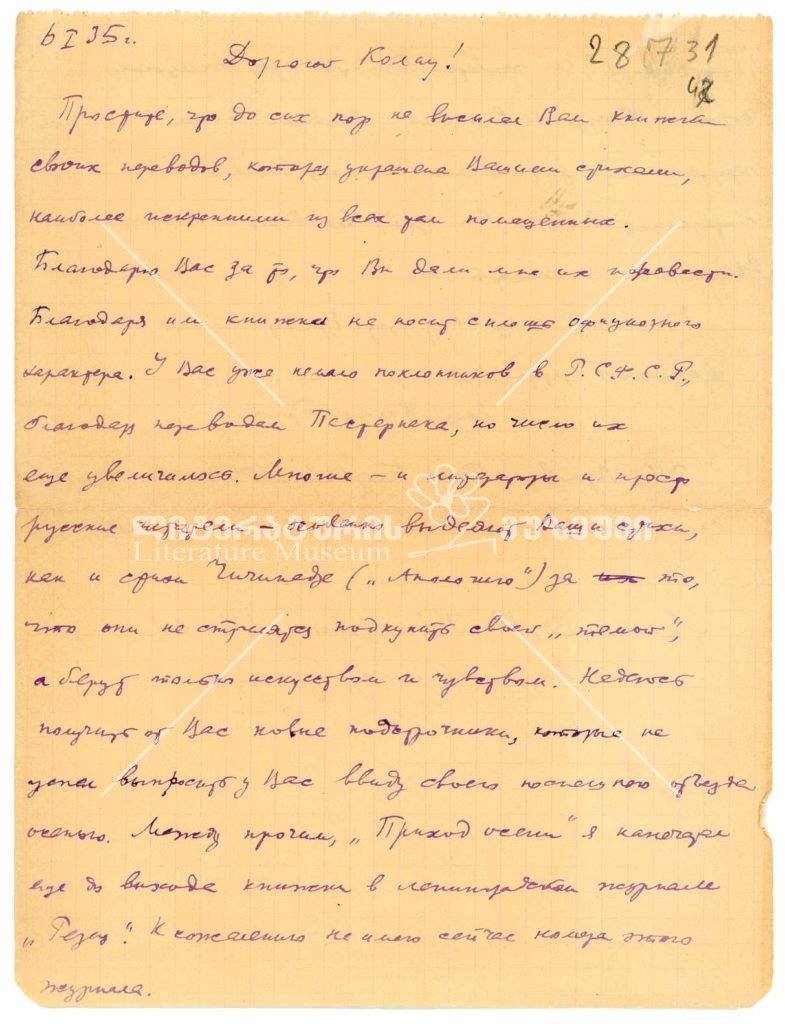 6 I 35 г.
28731
42
Дорогой Колау!
Простите, что до сих пор не выслал Вам книжки
своих переводов, которая украшена Вашими стихами,
наиболее искренними из всех там помещенных.
Благодарю Вас за то, что Вы дали мне их перевести.
Благодаря им книжка не носит сплошь официозного
характера. У Вас уже немало поклонников в Р.С.Ф.С.Р.,
благодаря переводам Пастернака, но число их
еще увеличилось. Многие – и литераторы и просто
русские читатели – особенно выделяют Ваши стихи,
ლიტერატურის მუზეუმი
Literature Museum
как и стихи Чичинадзе („Апологию“) за то,
что они не стремятся подкупить своей „темой“,
а берут только искусством и чувством. Надеюсь
получить от Вас новые подстрочники, которые не
успел выпросить у Вас ввиду своего поспешного отъезда
осенью. Между прочим, „Приход осени“ я напечатал
еще до выхода книжки в ленинградском журнале
„Резец“. К сожалению не имею сейчас номера этого
журнала.